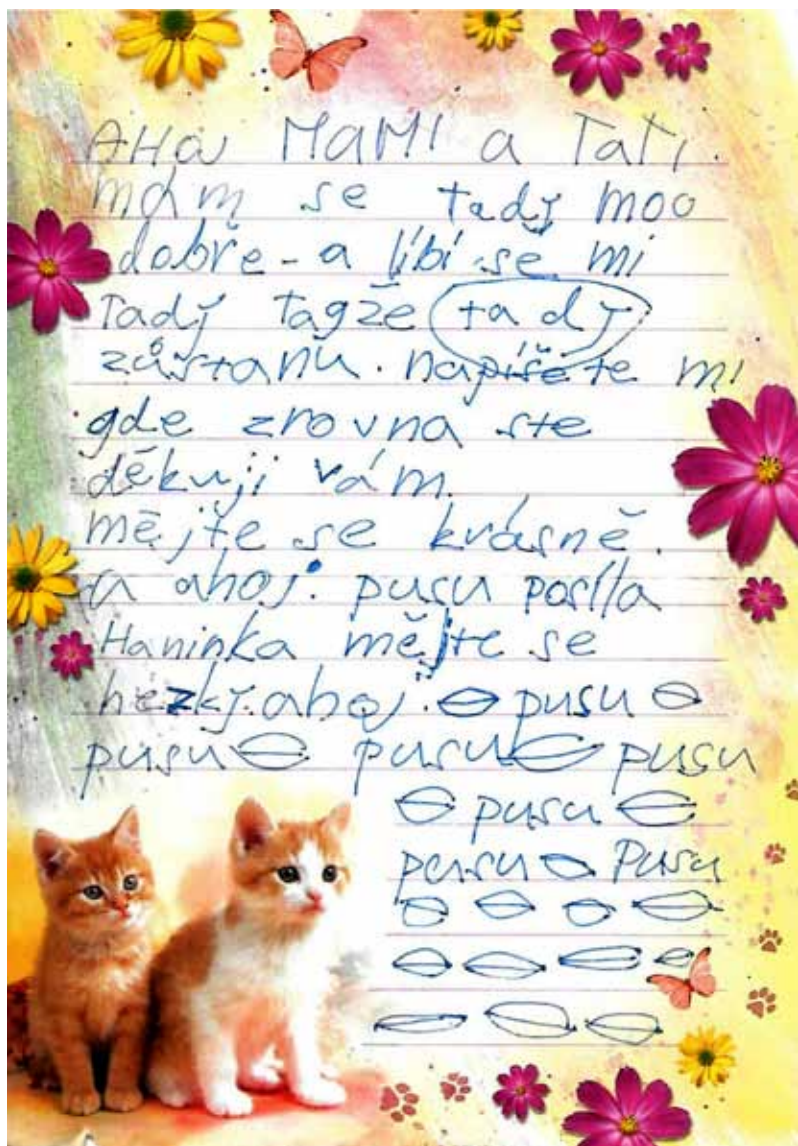 AHOJ MAMI a TaTi.
mám se tady moo
dobře - a líbí se mi
Tady tagže tady
zůstanu. napíšete mi
gde zrovna ste
děkuji vám.
mějte se krásně.
a ahoj. pusu posílá
Haninka mějte se
hezky. ahoj. pusu
pusu pusu pusu
pusu
pusu Pusu